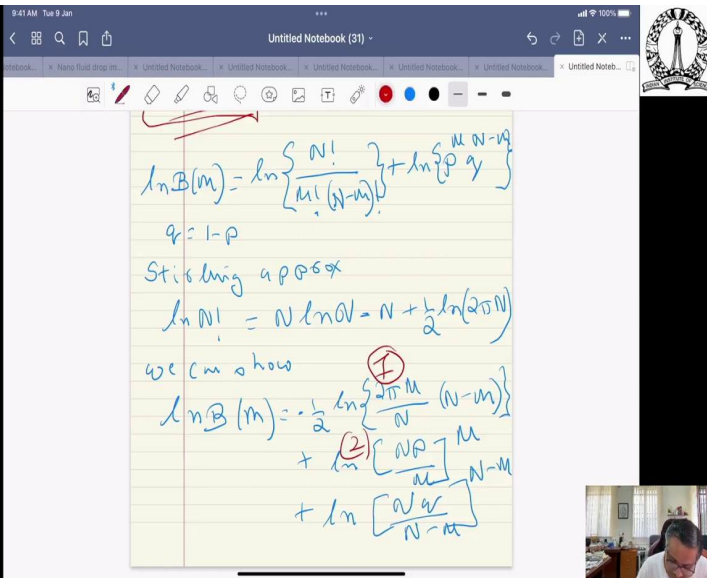 9:41 AM Tue 9 Jan
100%
Untitled Notebook (31)
Nano fluid drop im... × Untitled Notebook... × Untitled Notebook... × Untitled Notebook... × Untitled Notebook... × Untitled Notebook... × Untitled Noteb...
ln B(m) = ln { N! / M! (N-M)! } + ln { p^M q^N-M }
q = 1-p
Stirling approx
ln N! = N ln N - N + 1/2 ln(2πN)
we can show
(1)
ln B(m) = -1/2 ln { 2πM/N (N-M) }
(2)
+ ln [ NP/M ]^M
+ ln [ Nq/N-M ]^N-M